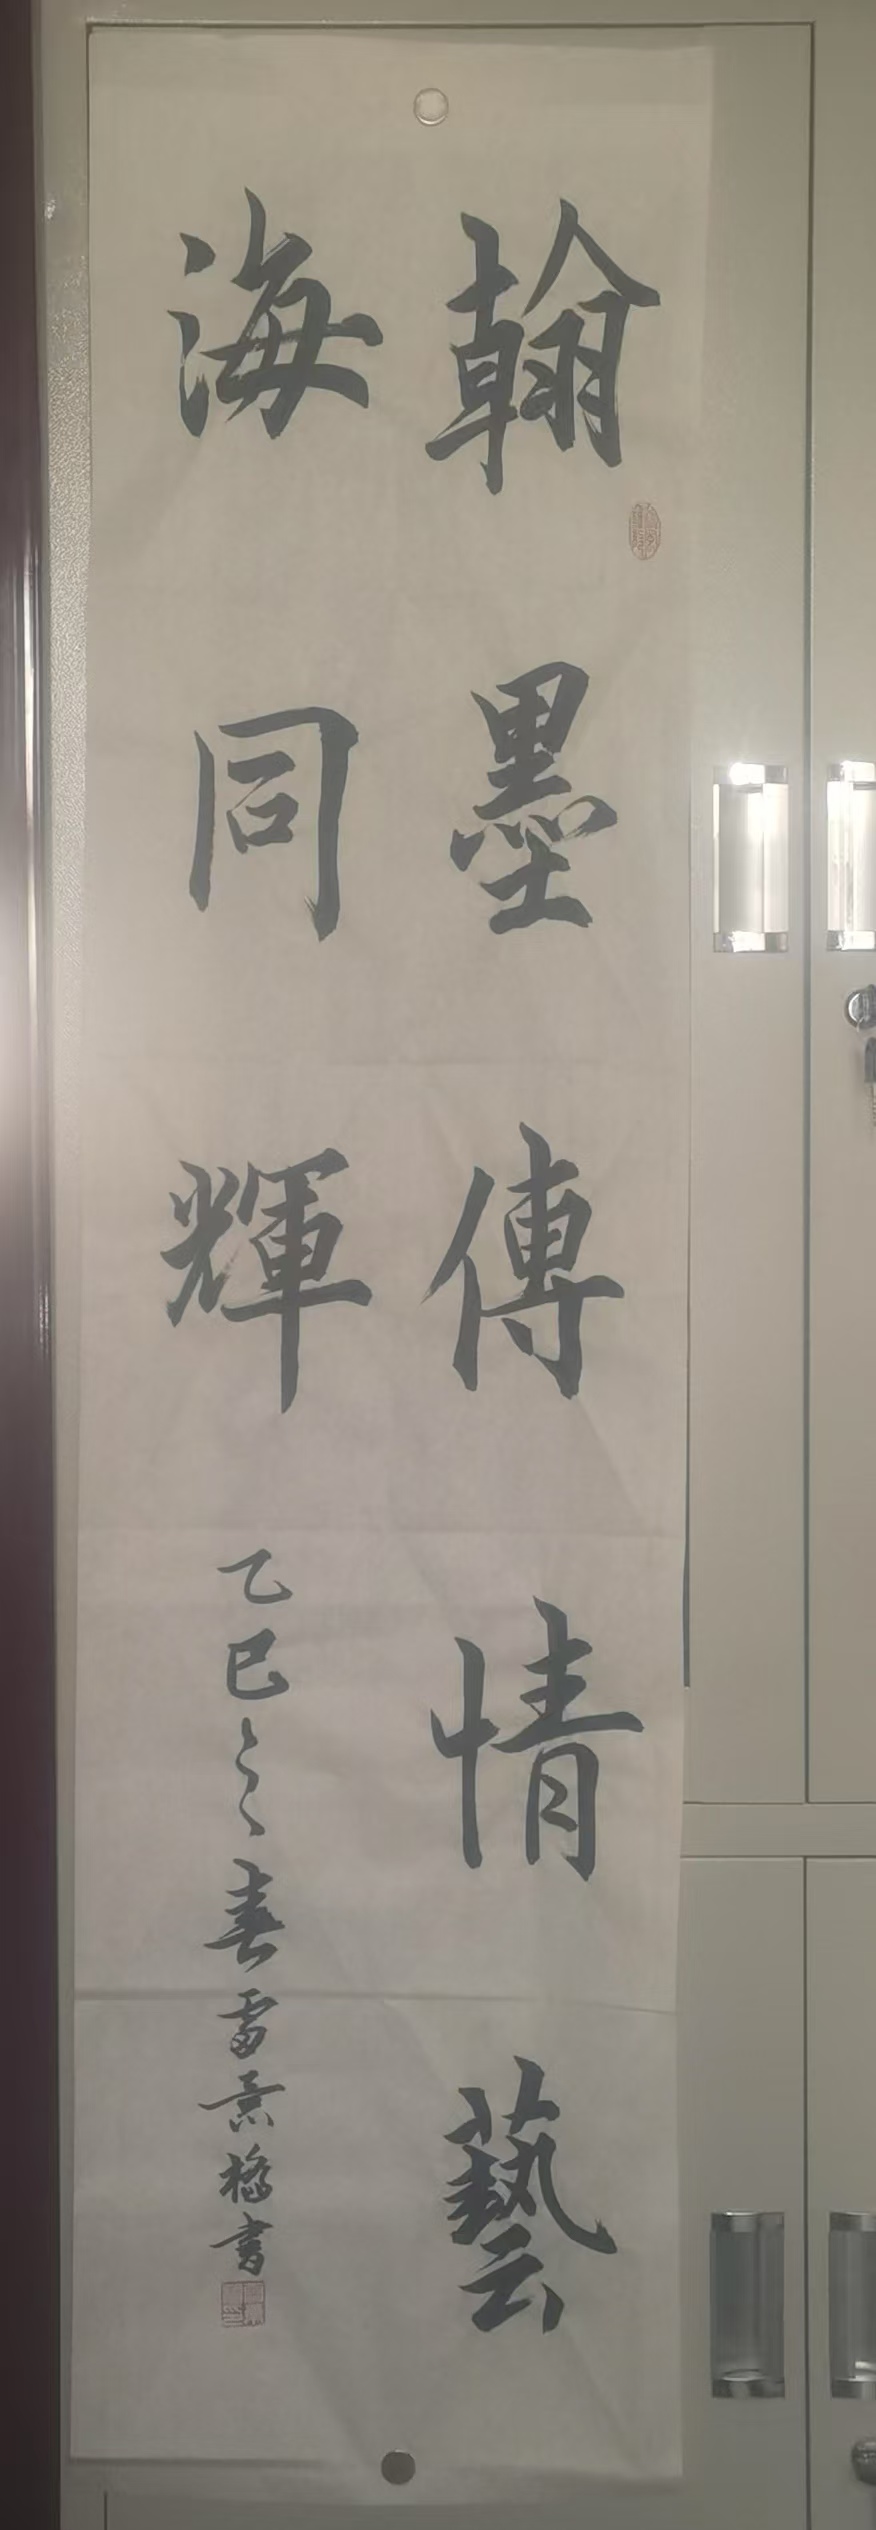 翰墨傳情藝
海同輝
乙巳之春雷景橋書